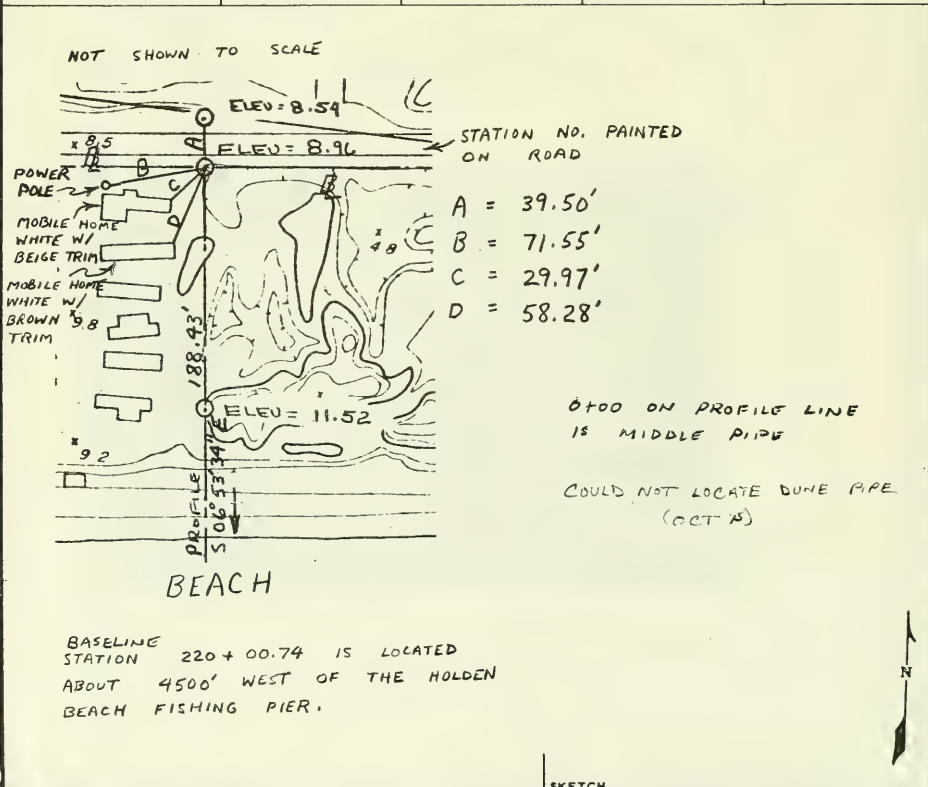 NOT SHOWN TO SCALE
ELEV = 8.54
A
STATION NO. PAINTED
ON ROAD
x 8.5
ELEV = 8.96
B
POWER
POLE
C
D
MOBILE HOME
WHITE W/
BEIGE TRIM
MOBILE HOME
WHITE W/
BROWN
TRIM
x 9.8
x 4.8
A = 39.50'
B = 71.55'
C = 29.97'
D = 58.28'
188.43'
ELEV = 11.52
0+00 ON PROFILE LINE
IS MIDDLE PIPE
x 9.2
COULD NOT LOCATE DUNE PIPE
PROFILE
S 06° 53' 34" E
BEACH
BASELINE
STATION 220 + 00.74 IS LOCATED
ABOUT 4500' WEST OF THE HOLDEN
BEACH FISHING PIER.
N
SKETCH